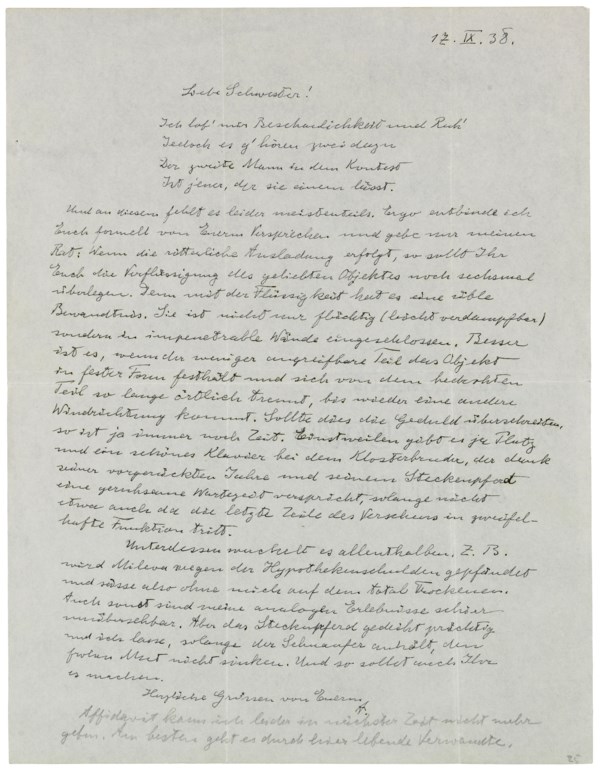 17. IX. 38.
Liebe Schwester!
Ich lob' mir Beschaulichkeit und Ruh'
Jedoch es g'hören zwei dazu
Der zweite Mann in dem Kontest
Ist jener, der sie einem lässt.
Und an diesem fehlt es leider meistenteils. Ergo entbinde ich
Euch formell vom Euerm Versprechen und gebe nur meinen
Rat: Wenn die ritterliche Ausladung erfolgt, so sollt Ihr
Euch die Verflüssigung des geliebten Objektes noch sechsmal
überlegen. Denn mit der Flüssigkeit hat es eine üble
Bewandtnis. Sie ist nicht nur flüchtig (leicht verdampfbar)
sondern in impenetrable Wände eingeschlossen. Besser
ist es, wenn der weniger angreifbare Teil das Objekt
in fester Form festhält und sich von dem bedrohten
Teil so lange örtlich trennt, bis wieder eine andere
Windrichtung kommt. Sollte dies die Geduld überschreiten,
so ist ja immer noch Zeit. Einstweilen gäbt es ja Platz
und ein schönes Klavier bei dem Klosterbruder, der dank
seiner vorgerückten Jahre und seinem Steckenpferd
eine geruhsame Wartezeit verspricht, solange nicht
etwa auch da die letzte Zeile des Verschens in zweifel-
hafte Funktion tritt.
Unterdessen wuckelt es allenthalben. Z. B.
wird Mileva wegen der Hypothekenschulden gepfändet
und sässe also ohne mich auf dem total Trockenen.
Auch sonst sind meine analogen Erlebnisse schier
unübersehbar. Aber das Steckenpferd gedeiht prächtig
und ich lasse, solange der Schnaufer anhält, den
frohen Mut nicht sinken. Und so solltet auch Ihr
es machen.
Herzliche Grüssen von Euerm
A.
Affidavit kann ich leider in nächster Zeit nicht mehr
geben. Am besten geht es durch hier lebende Verwandte.
25